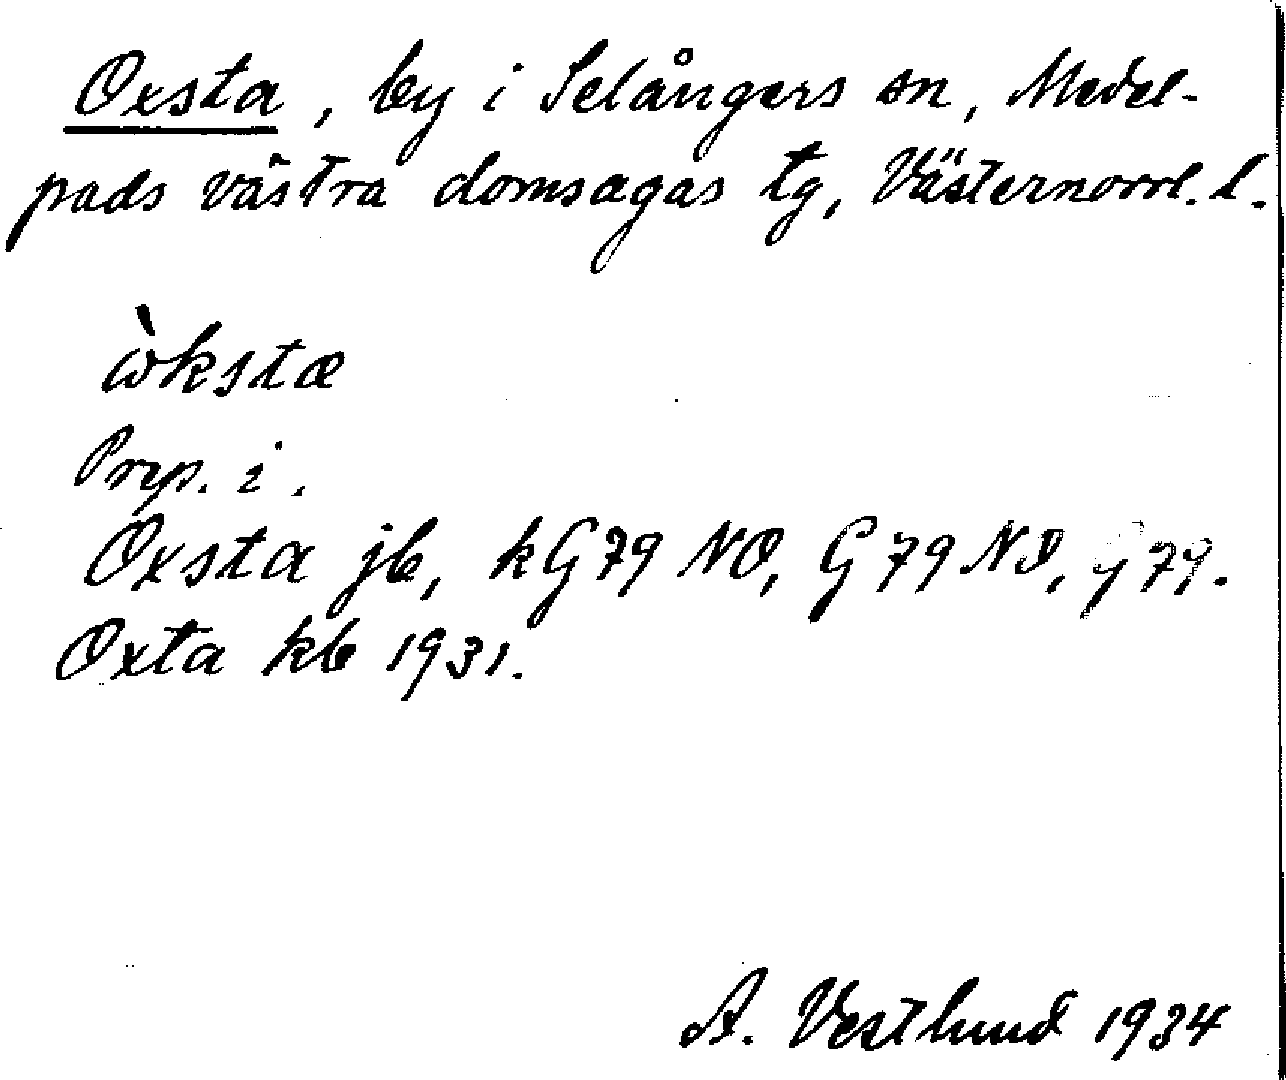 Oxsta, by i Selångers sn, Medel-
pads västra domsagas tg, Västernorrl. l.
ὼkstæ
Prep. i.
Oxsta jb, kG79 NO, G79 NO, G79.
Oxta kb 1931.
A. Vestlund 1934